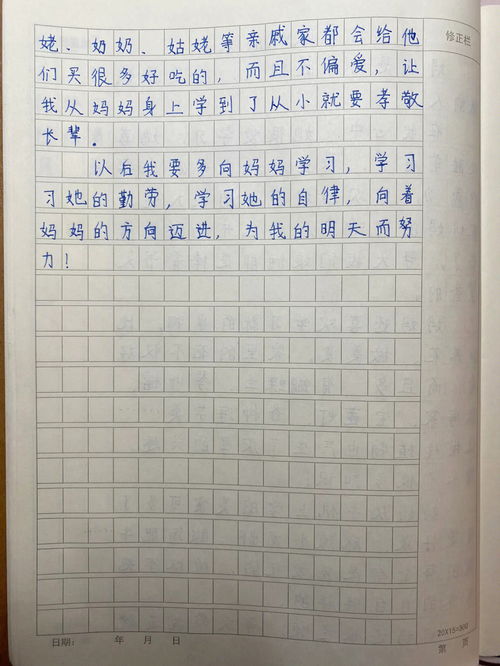 姥、奶奶、姑姥等亲戚家都会给他
们买很多好吃的，而且不偏爱，让
我从妈妈身上学到了从小就要孝敬
长辈。
以后我要多向妈妈学习，学习
习她的勤劳，学习她的自律，向着
妈妈的方向迈进，为我的明天而努
力！
修正栏
20X15=300
日期： 年 月 日
第 页